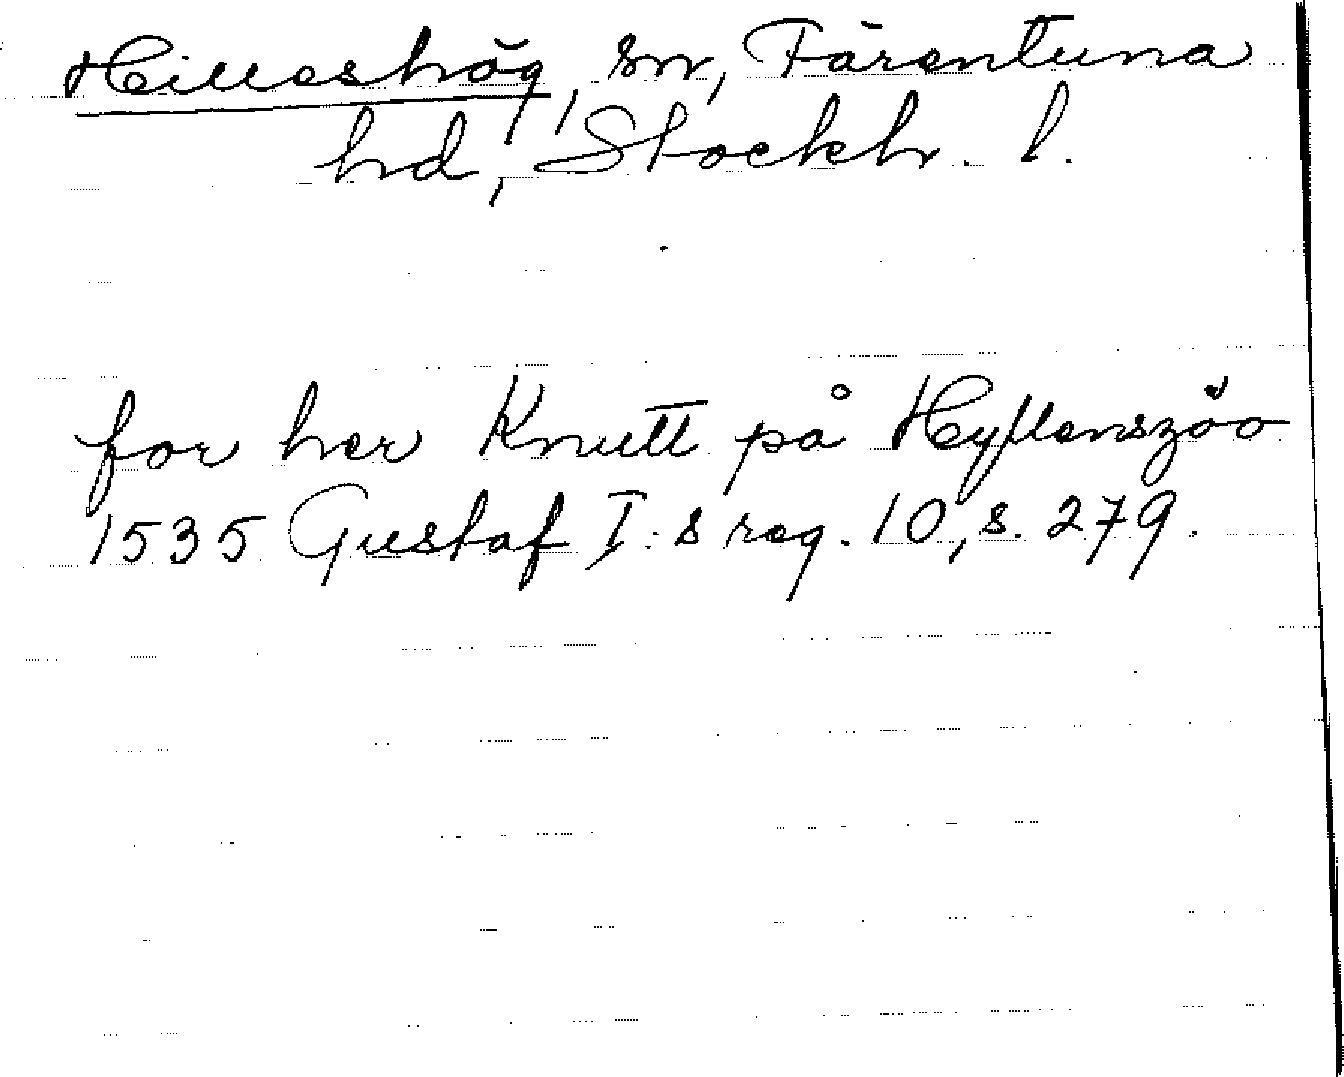 Hilleshög, sn, Färentuna
hd, Stockh. l.
for her Knutt på Hyllenszöo
1535 Gustaf I:s reg. 10, s. 279.